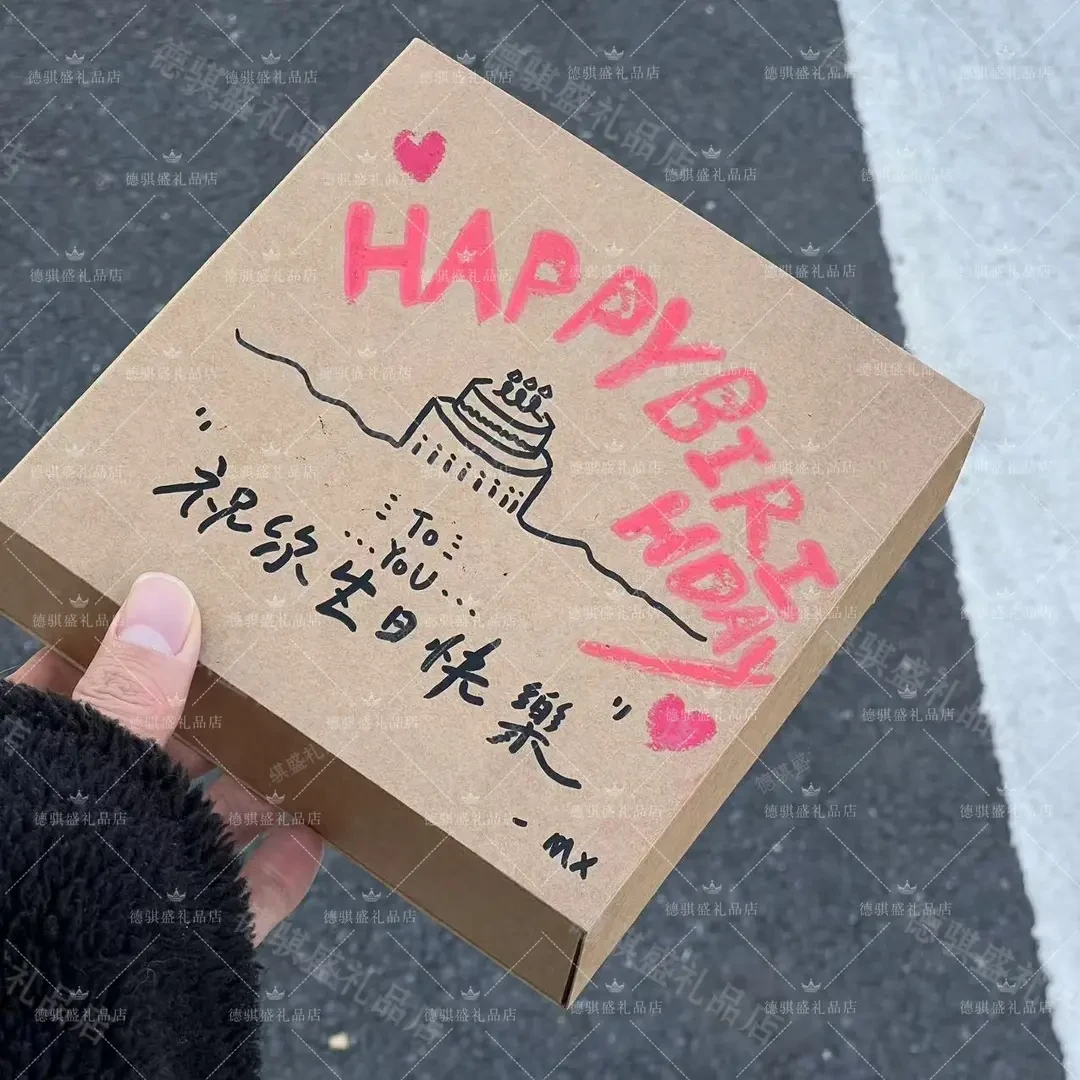 HAPPY BIRI
HDAY
TO
YOU
"祝你生日快樂"
- mx
德骐盛礼品店